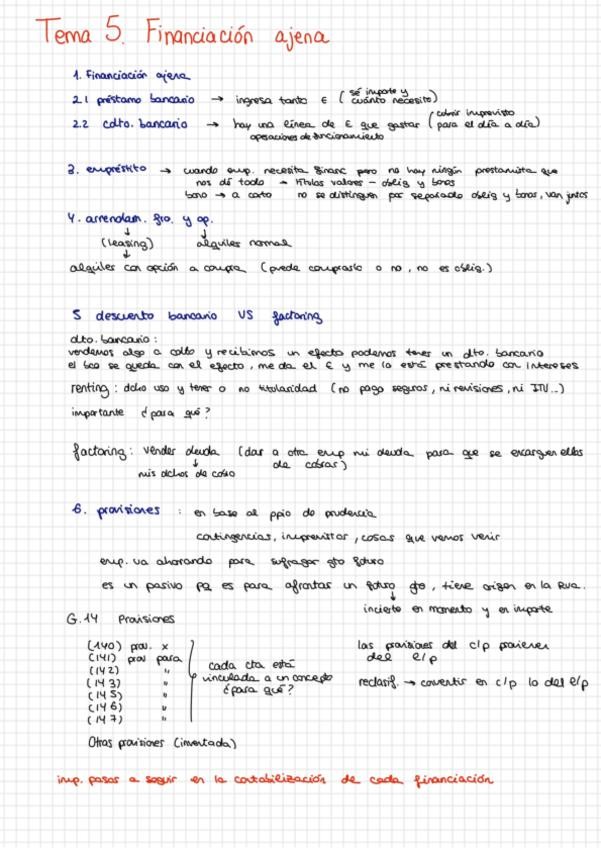 Tema 5. Financiación ajena
1. Financiación ajena
2.1 préstamo bancario → ingresa tanto € (sé importe y cuánto necesito)
2.2 cdto. bancario → hay una línea de € que gastar (cubrir imprevisto para el día a día)
operaciones de funcionamiento
3. empréstito → cuando emp. necesita financ pero no hay ningún prestamista que
nos dé todo → títulos valores - oblig y bonos
bono → a corto no se distinguen por separado oblig y bonos, van juntos
4. arrendam. fro. y op.
↓ ↓
(leasing) alquiles normal
↓
alquiles con opción a compra (puede comprarlo o no, no es oblig.)
5 descuento bancario VS factoring
dto. bancario:
vendemos algo a cdto y recibimos un efecto podemos tener un dto. bancario
el bco se queda con el efecto, me da el € y me lo está prestando con intereses
renting: dcho uso y tener o no titularidad (no pago seguros, ni revisiones, ni ITV...)
importante ¿para qué?
factoring: vender deuda (dar a otra emp mi deuda para que se encarguen ellos
↓ de cobrar)
mis dchos de cobro
6. provisiones : en base al ppio de prudencia
contingencias, imprevistos, cosas que vemos venir
emp. va ahorrando para sufragar gto futuro
es un pasivo pq es para afrontar un futuro gto, tiene origen en la
↓
incierto en momento y en importe
G.14 Provisiones
(140) prov. x
(141) prov para
(142) "
(143) "
(145) "
(146) "
(147) "
cada cta está
vinculada a un concepto
¿para qué?
las provisiones del c/p provienen
del l/p
reclasif. → convertir en c/p lo del l/p
Otras provisiones (inventada)
imp. pasos a seguir en la contabilización de cada financiación